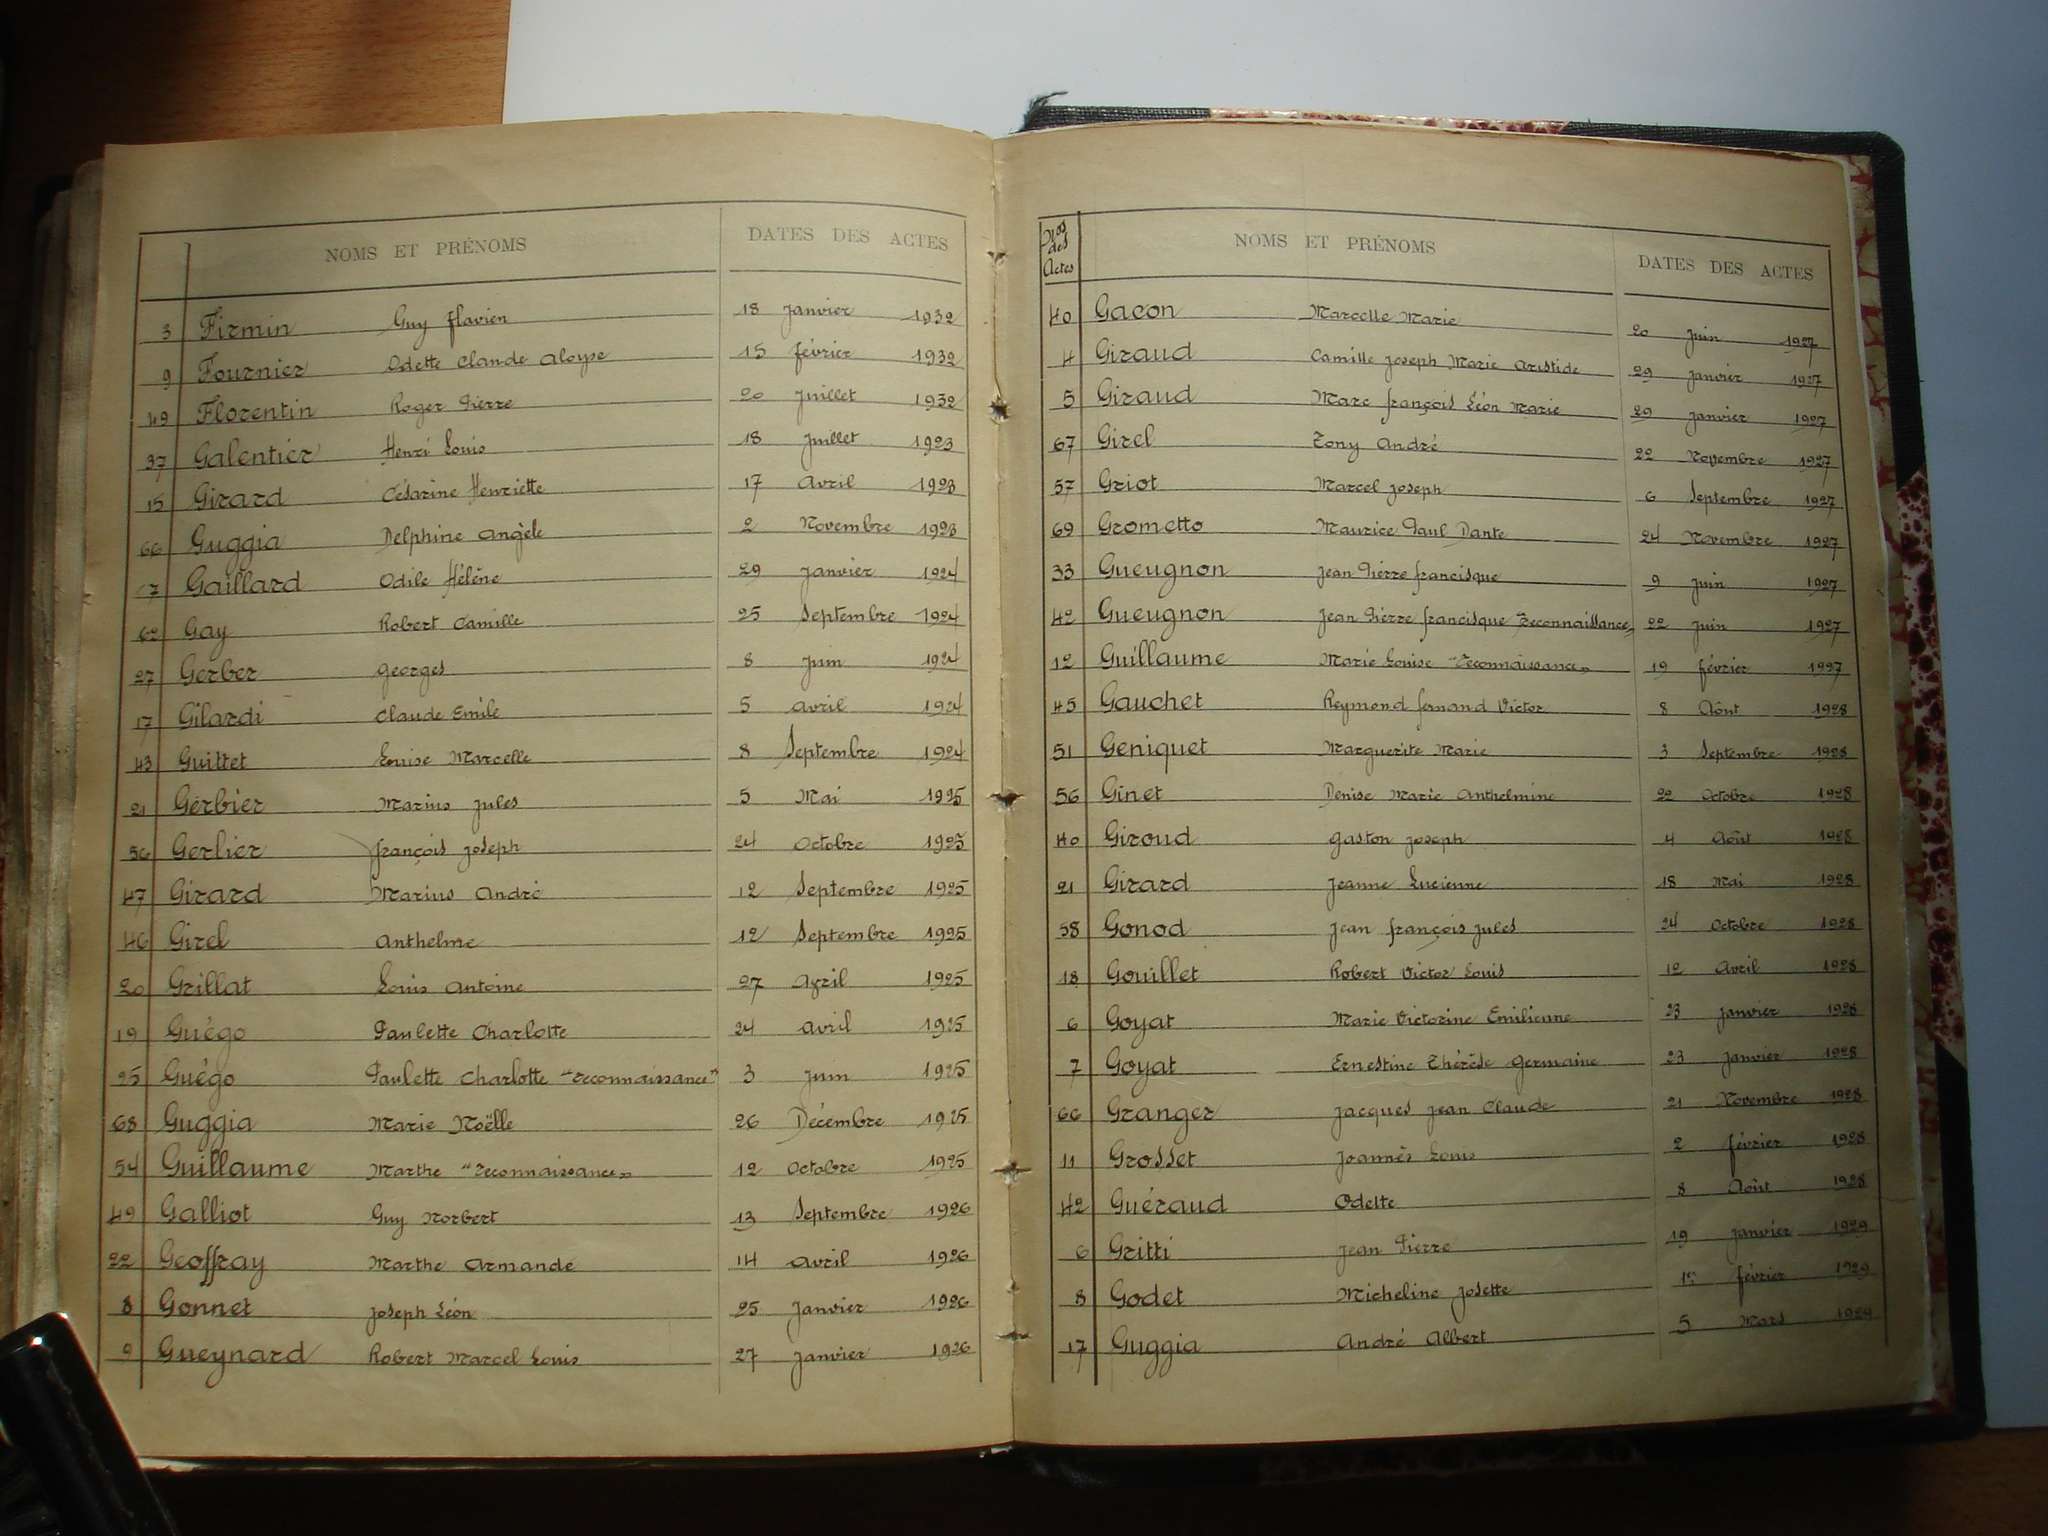 NOMS ET PRÉNOMS DATES DES ACTES
3 Firmin Guy flavien 18 janvier 1932
9 Fournier Odette Claude Aloyse 15 février 1932
49 Florentin Roger Pierre 20 juillet 1932
37 Galentier Henri Louis 18 juillet 1923
15 Girard Césarine Henriette 17 Avril 1923
66 Guggia Delphine Angèle 2 Novembre 1923
7 Gaillard Odile Hélène 29 janvier 1924
62 Gay Robert Camille 25 Septembre 1924
27 Gerber georges 8 juin 1924
17 Gilardi Claude Emile 5 avril 1924
43 Guittet Louise Marcelle 8 Septembre 1924
21 Gerbier Marius jules 5 Mai 1925
56 Gerlier françois joseph 24 Octobre 1925
47 Girard Marius André 12 Septembre 1925
46 Girel Anthelme 12 Septembre 1925
20 Grillat Louis Antoine 27 Avril 1925
19 Guégo Paulette Charlotte 24 avril 1925
25 Guégo Paulette Charlotte "reconnaissance" 3 juin 1925
68 Guggia Marie Noëlle 26 Décembre 1925
54 Guillaume Marthe "reconnaissance" 12 Octobre 1925
49 Galliot Guy Norbert 13 Septembre 1926
22 Geoffray Marthe Armande 14 avril 1926
8 Gonnet joseph Léon 25 janvier 1926
9 Gueynard Robert Marcel Louis 27 janvier 1926
Nos des Actes NOMS ET PRÉNOMS DATES DES ACTES
40 Gacon Marcelle Marie 20 juin 1927
4 Giraud Camille joseph Marie Aristide 29 janvier 1927
5 Giraud Marc françois Léon Marie 29 janvier 1927
67 Girel Tony André 22 Novembre 1927
57 Griot Marcel joseph 6 Septembre 1927
69 Grometto Maurice Paul Dante 24 Novembre 1927
33 Gueugnon jean Pierre francisque 9 juin 1927
42 Gueugnon jean Pierre francisque "reconnaissance" 22 juin 1927
12 Guillaume Marie Louise "reconnaissance" 19 février 1927
45 Gauchet Reymond fernand Victor 8 Août 1928
51 Geniquet Marguerite Marie 3 Septembre 1928
56 Ginet Denise Marie Anthelmine 22 octobre 1928
40 Giroud gaston joseph 4 Août 1928
21 Girard jeanne Lucienne 18 Mai 1928
58 Gonod jean françois jules 24 octobre 1928
18 Gouillet Robert Victor Louis 12 Avril 1928
6 Goyat Marie Victorine Emilienne 23 janvier 1928
7 Goyat Ernestine Thérèse germaine 23 janvier 1928
66 Granger jacques jean Claude 21 Novembre 1928
11 Grosset joannès Louis 2 février 1928
42 Guéraud Odette 8 Août 1928
6 Gritti jean Pierre 19 janvier 1929
8 Godet Micheline josette 1er février 1929
17 Guggia André Albert 5 Mars 1929